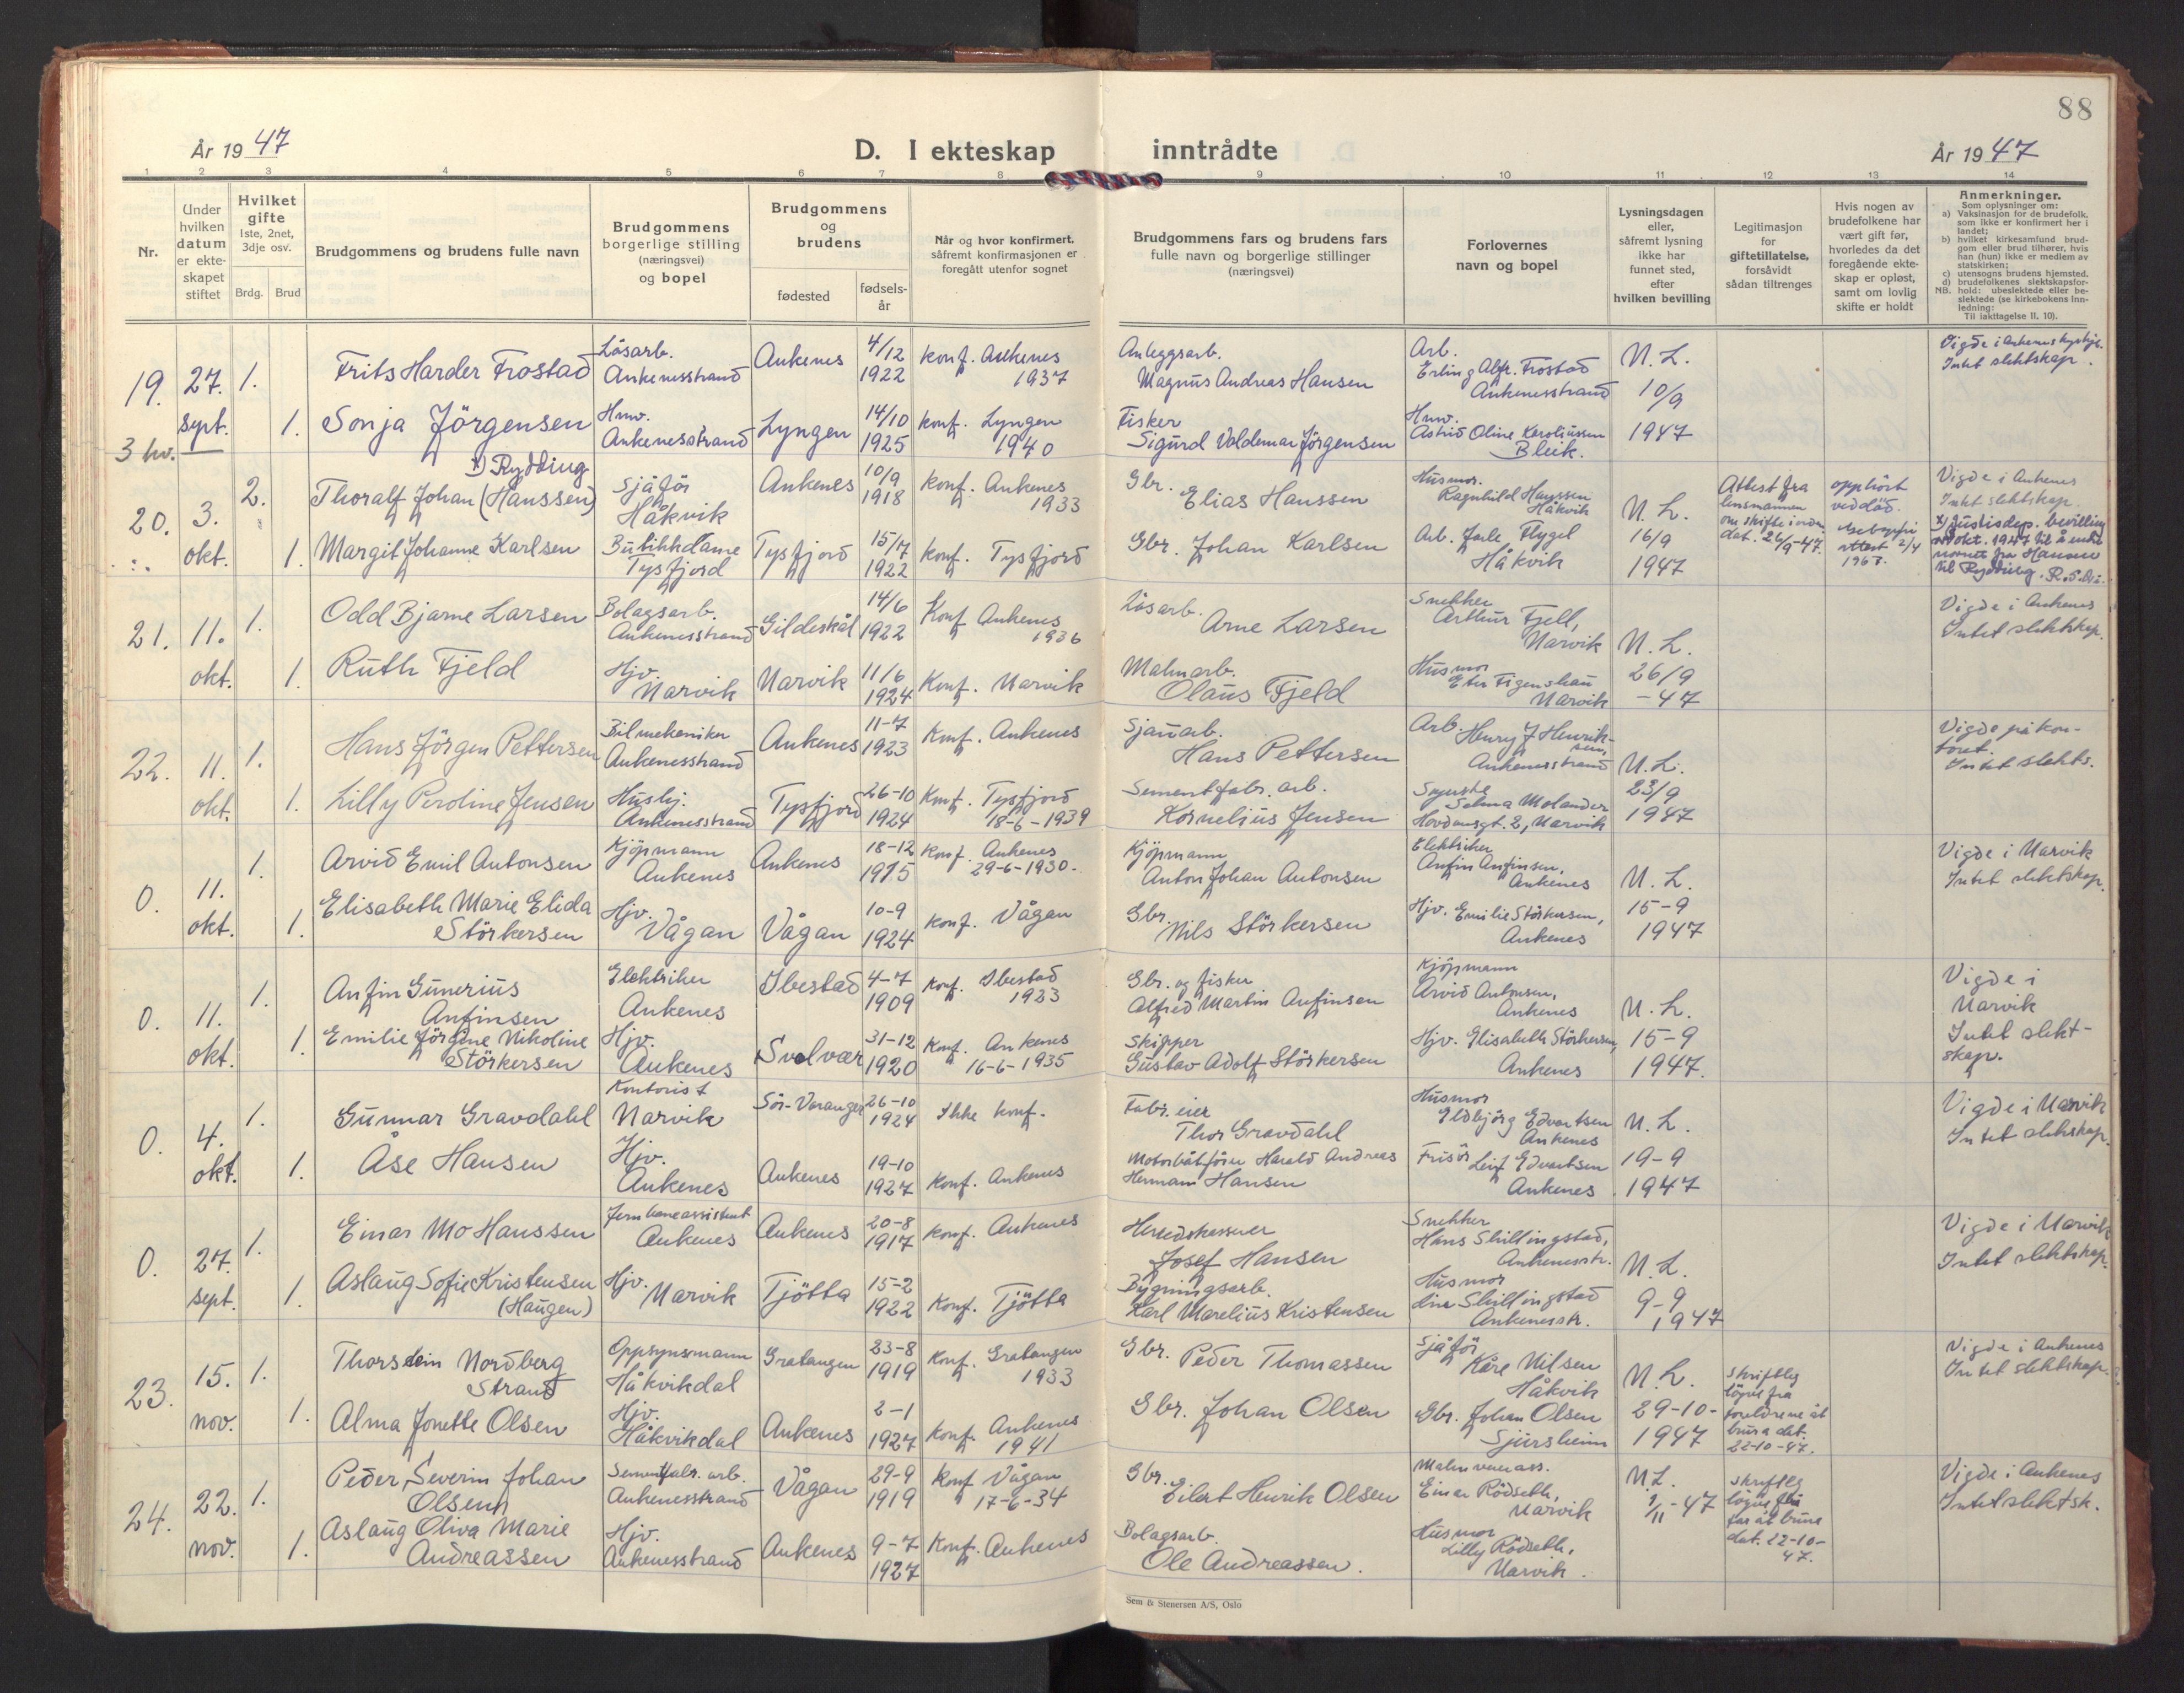 88
År 1947
D. I ekteskap inntrådte
År 1947
1 2 3 4 5 6 7 8 9 10 11 12 13 14
Nr.
Under hvilken datum er ekteskapet stiftet
Hvilket gifte
1ste, 2net, 3dje osv.
Brdg. Brud
Brudgommens og brudens fulle navn
Brudgommens borgerlige stilling (næringsvei) og bopel
Brudgommens og brudens
fødested
fødselsår
Når og hvor konfirmert, såfremt konfirmasjonen er foregått utenfor sognet
Brudgommens fars og brudens fars fulle navn og borgerlige stillinger (næringsvei)
Forlovernes navn og bopel
Lysningsdagen eller, såfremt lysning ikke har funnet sted, efter hvilken bevilling
Legitimasjon for giftetillatelse, forsåvidt sådan tiltrenges
Hvis nogen av brudefolkene har vært gift før, hvorledes da det foregående ekteskap er opløst, samt om lovlig skifte er holdt
Anmerkninger.
Som oplysninger om:
a) Vaksinasjon for de brudefolk, som ikke er konfirmert her i landet;
b) hvilket kirkesamfund brudgom eller brud tilhører, hvis han (hun) ikke er medlem av statskirken;
c) utensogns brudens hjemsted.
d) brudefolkenes slektskapsforhold: ubeslektede eller beslektede (se kirkebokens Innledning:
NB.
Til iakttagelse II, 10).
19. 27. sept. 1. Frits Harder Frostad
Løsarb. Ankenesstrand
Ankenes 4/12 1922
konf. Ankenes 1937
Anleggsarb. Magnus Andreas Hansen
Arb. Erling Alfr. Frostad Ankenesstrand
N. L. 10/9 1947
Intet slektskap.
1. Sonja Jörgensen
Hnv. Ankenesstrand
Lyngen 14/10 1925
konf. Lyngen 1940
Fisker Sigurd Valdemar Jörgensen
Hnv. Astrid Oline Karoliussen Bleik.
3 hv.
20. 3. okt. 2. x) Rydding
Thoralf Johan (Hanssen)
Sjåför Håkvik
Ankenes 10/9 1918
konf. Ankenes 1933
Gbr. Elias Hanssen
Husmor. Ragnhild Hanssen Håkvik
N. L. 16/9 1947
Attest fra lensmannen om skifte i orden dat. 26/9-47.
opphört ved död.
attest 2/4 1968.
Vigde i Ankenes
Intet slektskap.
x) Justisdep. bevilling okt. 1947 til å endre navnet fra Hansen til Rydding.
1. Margit Johanne Karlsen
Butikkdame Tysfjord
Tysfjord 15/7 1922
konf. Tysfjord
Gbr. Johan Karlsen
Arb. Jarle Flygel Håkvik
21. 11. okt. 1. Odd Bjarne Larsen
Bolagsarb. Ankenesstrand
Gildeskål 14/6 1922
Konf Ankenes 1936
Løsarb. Arne Larsen
Snekker Arthur Fjell, Narvik
N. L. 26/9 -47
Vigde i Ankenes
Intet slektskap.
1. Ruth Fjeld
Hjv. Narvik
Narvik 11/6 1924
Konf. Narvik
Malmarb. Olaus Fjeld
Husmor Figenshau Narvik
22. 11. okt. 1. Hans Jörgen Pettersen
Bilmekaniker Ankenesstrand
Ankenes 11-7 1923
Konf. Ankenes
Sjauarb. Hans Pettersen
Arb. Henry J Henriksen, Ankenesstrand
N. L. 23/9 1947
Vigde på kontoret.
Intet slekts.
1. Lilly Peroline Jensen
Hushj. Ankenesstrand
Tysfjord 26-10 1924
Konf. Tysfjord 18-6-1939
Sementfabr. arb. Kornelius Jensen
Selma Molander 2, Narvik
0. 11. okt. 1. Arvid Emil Antonsen
Kjöpmann Ankenes
Ankenes 18-12 1915
Konf. Ankenes 29-6-1930.
Kjöpmann Anton Johan Antonsen
Elektriker Anfin Anfinsen, Ankenes
N. L. 15-9 1947
Vigde i Narvik
Intet slektskap.
1. Elisabeth Marie Elida Störkersen
Hjv. Vågan
Vågan 10-9 1924
konf. Vågan
Gbr. Nils Störkersen
Hjv. Emilie Störkersen, Ankenes
0. 11. okt. 1. Anfin Gunerius Anfinsen
Elektriker Ankenes
Ibestad 4-7 1909
Konf. Ibestad 1923
Gbr. og fisker Alfred Martin Anfinsen
Kjöpmann Arvid Antonsen, Ankenes
N. L. 15-9 1947.
Vigde i Narvik
Intet slektskap.
1. Emilie Jörgine Nikoline Störkersen
Hjv. Ankenes
Svolvær 31-12 1920
Konf. Ankenes 16-6-1935
Skipper Gustav Adolf Störkersen
Hjv. Elisabeth Störkersen, Ankenes
0. 4. okt. 1. Gunnar Gravdahl
Kontorist Narvik
Sör-Varanger 26-10 1924
Ikke konf.
Fabr. eier Thor Gravdahl
Husmor Eldbjörg Edvartsen Ankenes
N. L. 19-9 1947
Vigde i Narvik
Intet slektskap.
1. Åse Hansen
Hjv. Ankenes
Ankenes 19-10 1927
Konf. Ankenes
Motorbåtförer Harald Andreas Hermann Hansen
Frisör Leif Edvartsen Ankenes
0. 27. sept. 1. Einar Mo Hanssen
Jernbaneassistent Ankenes
Ankenes 20-8 1917
Konf. Ankenes
Herredskasserer Josef Hansen
Snekker Hans Skillingstad, Ankenesstr.
N. L. 9-9 1947
Vigde i Narvik
Intet slektskap.
1. Aslaug Sofie Kristensen (Haugen)
Hjv. Narvik
Tjötta 15-2 1922
Konf. Tjötta
Bygningsarb. Karl Marelius Kristensen
Husmor Lina Skillingstad Ankenesstr.
23. 15. nov. 1. Thorstein Nordberg Strand
Oppsynsmann Håkvikdal
Gratangen 23-8 1919
Konf. Gratangen 1933
Gbr. Peder Thomassen
Sjåför Kåre Nilsen Håkvik
N. L. 29-10-1947
Skriftleg löyve fra foreldrene åt brura dat. 22-10-47.
Vigde i Ankenes
Intet slektskap.
1. Alma Jonette Olsen
Hjv. Håkvikdal
Ankenes 2-1 1927
Konf. Ankenes 1941
Gbr. Johan Olsen
Gbr. Johan Olsen Sjursheim
24. 22. nov. 1. Peder Severin Johan Olsen
Sementfabr. arb. Ankenesstrand
Vågan 29-9 1919
Konf Vågan 17-6-34
Gbr. Eilert Henrik Olsen
Einar Rödseth, Narvik
N. L. 1/11-47
skriftleg löyve frå far åt brura dat. 22-10-47.
Vigde i Ankenes
Intet slektsk.
1. Aslaug Oliva Marie Andreassen
Hjv. Ankenesstrand
Ankenes 9-7 1927
Konf. Ankenes
Bolagsarb. Ole Andreassen.
Husmor Lilly Rödseth, Narvik.
Sem & Stenersen A/S, Oslo